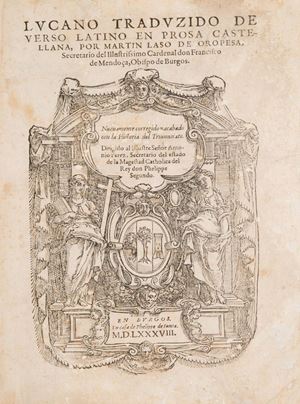 LVCANO TRADVZIDO DE
VERSO LATINO EN PROSA CASTE-
LLANA, POR MARTIN LASO DE OROPESA,
Secretario del Illustrissimo Cardenal don Francisco
de Mendoça, Obispo de Burgos.
Nueuamente corregido y acabado
con la Historia del Triunuirato.
Dirigido al Illustre Señor Anto-
nio Perez, Secretario del estado
de la Magestad Catholica del
Rey don Phelippe
Segundo.
EN BVRGOS.
En casa de Phelippe de Iunta.
M.D.LXXXVIII.